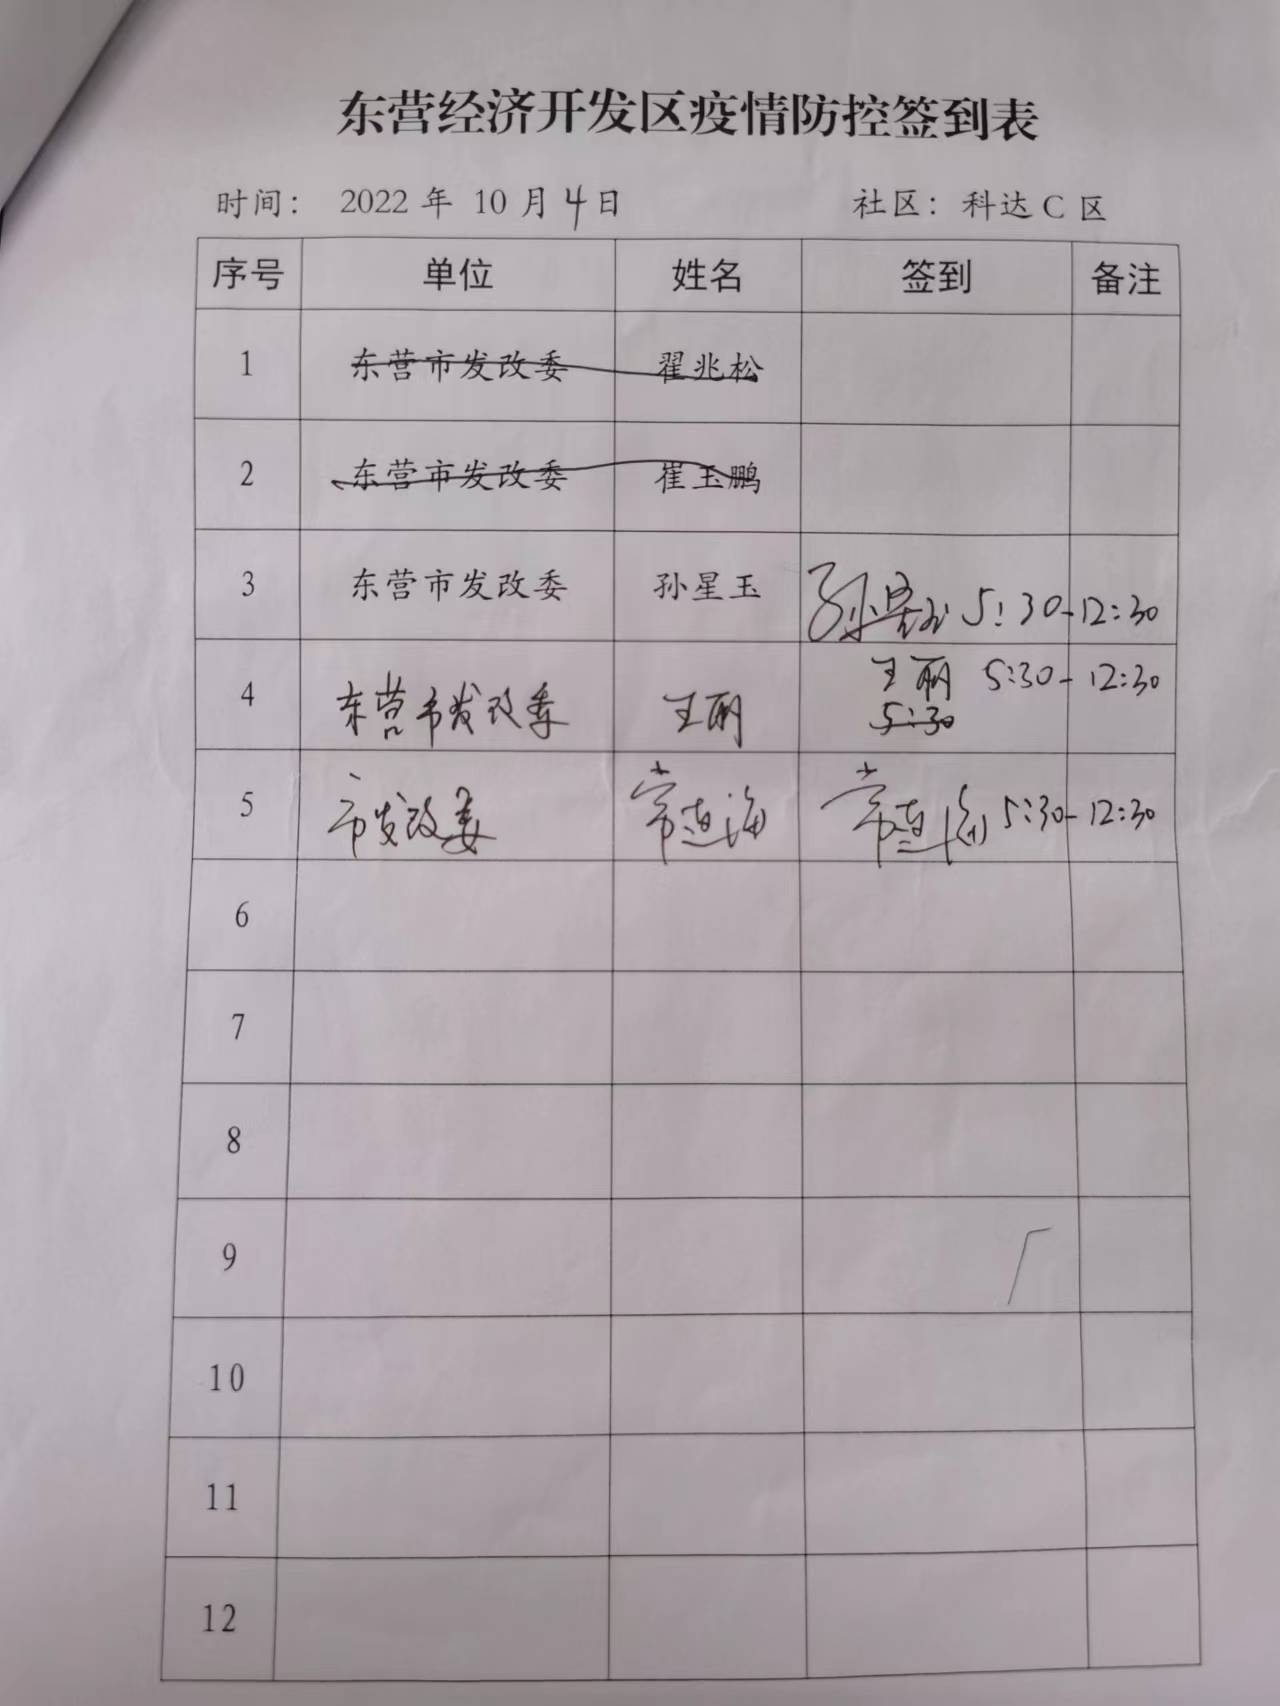 东营经济开发区疫情防控签到表
时间： 2022 年 10 月 4 日 社区：科达 C 区
序号 单位 姓名 签到 备注
1 东营市发改委 翟兆松
2 东营市发改委 崔玉鹏
3 东营市发改委 孙星玉 孙星玉 5:30-12:30
4 东营市发改委 王丽 王丽 5:30-12:30
5:30
5 市发改委 常连海 常连海 5:30-12:30
6
7
8
9
10
11
12